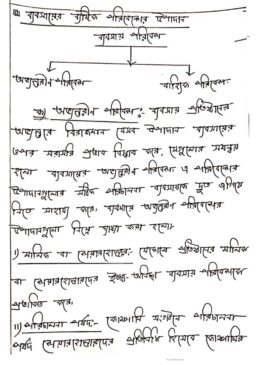 ব্যবসায়ের বাহ্যিক পরিবেশের উপাদান
ব্যবসায় পরিবেশ
অভ্যন্তরীণ পরিবেশ
বাহ্যিক পরিবেশ
ক) অভ্যন্তরীণ পরিবেশ :- ব্যবসায় প্রতিষ্ঠানের
অভ্যন্তরে বিরাজমান যেসব উপাদান ব্যবসায়ের
ওপর সরাসরি প্রভাব বিস্তার করে, সেগুলোর সমন্বয়
হলো ব্যবসায়ের অভ্যন্তরীণ পরিবেশ। এ পরিবেশের
উপাদানগুলোর সঠিক পরিচালনা ব্যবসায়কে দ্রুত এগিয়ে
নিতে সাহায্য করে। ব্যবসায়ের অভ্যন্তরীণ পরিবেশের
উপাদানগুলো নিম্নে ব্যাখ্যা করা হলো:
i) মালিক বা শেয়ারহোল্ডার:- যেকোনো প্রতিষ্ঠানের মালিক
বা শেয়ারহোল্ডারদের ইচ্ছা-অনিচ্ছা ব্যবসায় পরিবেশকে
প্রভাবিত করে।
ii) পরিচালনা পর্ষদ:- কোম্পানি সংগঠনে পরিচালনা
পর্ষদ শেয়ারহোল্ডারদের প্রতিনিধি হিসেবে কোম্পানির